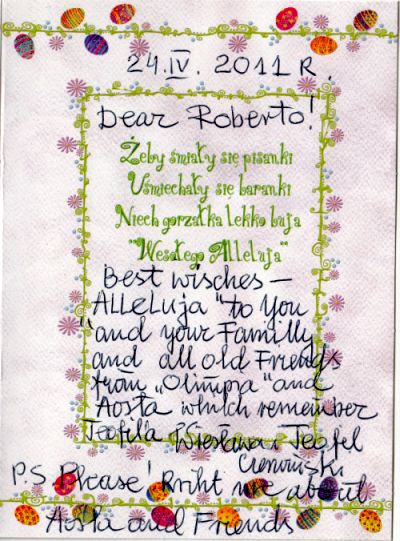 24.IV. 2011 R.
Dear Roberto!
Żeby śmiały się pisanki
Uśmiechały się baranki
Niech gorzałka lekko buja
"Wesołego Alleluja"
Best wisches –
"Alleluja" to You
and your Familly
and all old Friends
from „Olimpa" and
Aosta whulch remember
Teofila Wiesława i Teofel
Czerwiński
P.S. Please! Rriht me about
Aosta and Friends